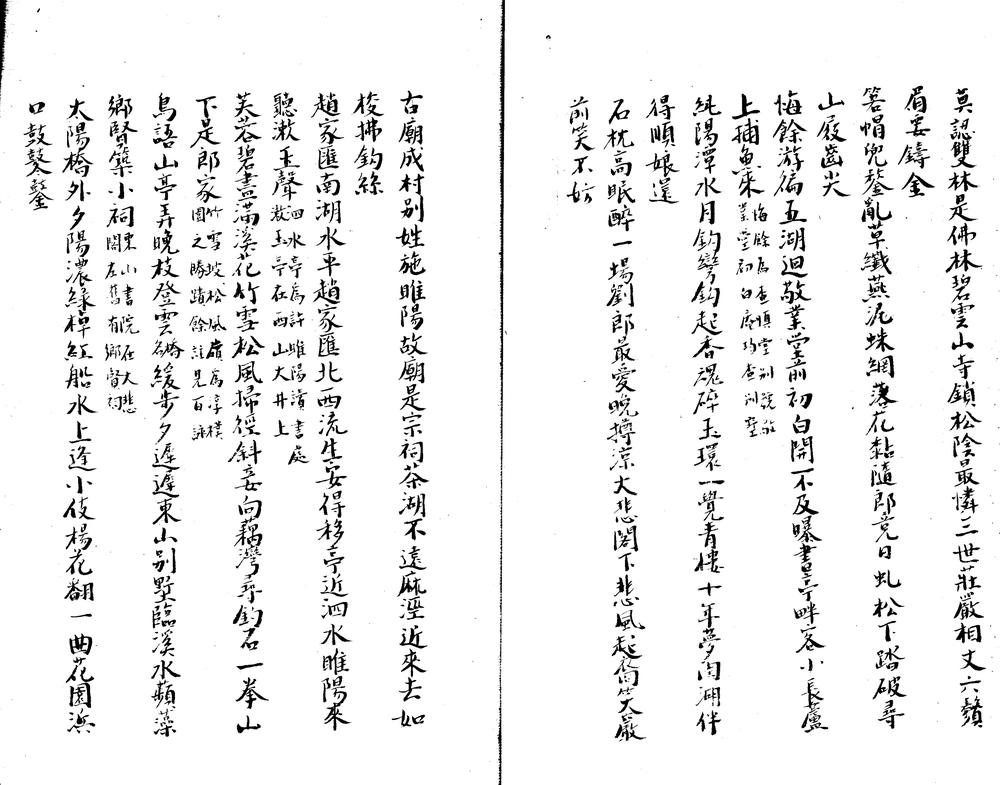 莫認雙林是佛林碧雲山寺鎖松陰最憐三世莊嚴相丈六鬚
眉要鑄金
箬帽兜鍪亂草纖燕泥蛛網落花黏隨郎竟日虬松下踏破尋
山屐齒尖
悔餘游徧五湖迴敬業堂前初白開不及曝書亭畔客小長蘆
上捕魚來
悔餘爲查慎堂別號敬
業堂初白庵均查別墅
純陽潭水月鈎彎鈎起香魂碎玉環一覺青樓十年夢肉湖伴
得順娘還
石枕高眠醉一場劉郎最愛晚搏涼大悲閣下悲風起商笑嚴
前笑不妨
古廟成村別姓施睢陽故廟是宗祠茶湖不遠麻涇近來去如
梭拂鈎絲
趙家匯南湖水平趙家匯北西流生安得移亭近泗水睢陽來
聽漱玉聲
泗水亭爲許睢陽讀書處
漱玉亭在西山大井上
芙蓉碧盡滿溪花竹雪松風掃徑斜妾向藕灣尋釣石一拳山
下是郎家
竹雪坡松風嶺爲享樸
園之勝蹟餘註見百詠
鳥語山亭弄晚枝登雲橋緩步夕遲遲東山別墅臨溪水蘋藻
鄉賢築小祠
東山書院在大悲
閣左舊有鄉賢祠
太陽橋外夕陽濃綠樺紅船水上逢小伎楊花翻一曲花園浜
口鼓鼕鼕